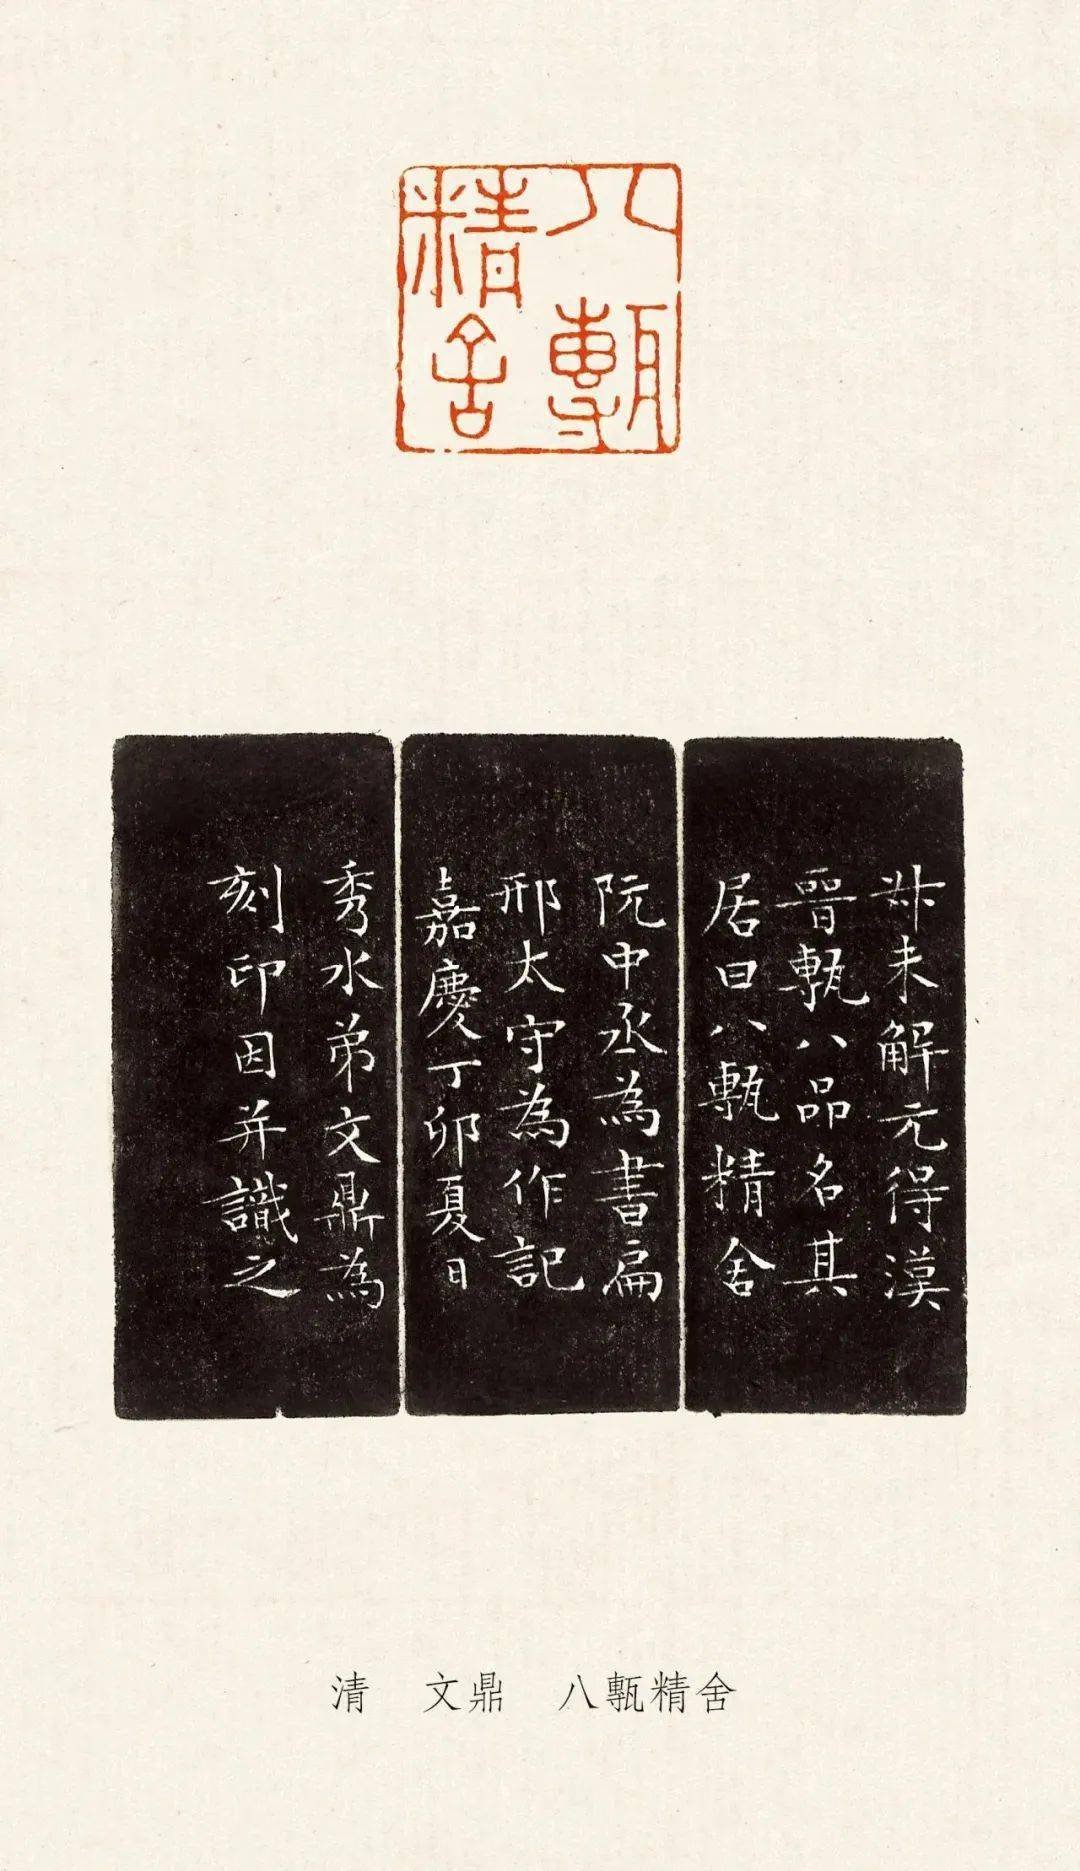 八甎
精舍
叔未解元得漢
晉甎八品名其
居曰八甎精舍
阮中丞為書扁
邢太守為作記
嘉慶丁卯夏日
秀水弟文鼎為
刻印因并識之
清　文鼎　八甎精舍